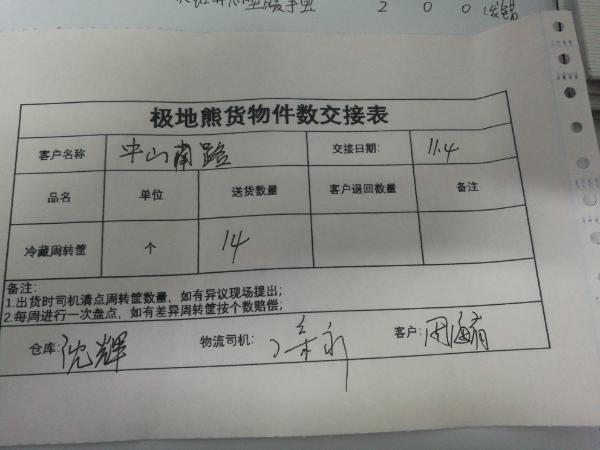 2 0 0
极地熊货物件数交接表
客户名称 中山南路 交接日期: 11.4
品名 单位 送货数量 客户退回数量 备注
冷藏周转筐 个 14
备注:
1.出货时司机清点周转筐数量，如有异议现场提出;
2.每周进行一次盘点，如有差异周转筐按个数赔偿;
仓库: 沈辉 物流司机: 客户: